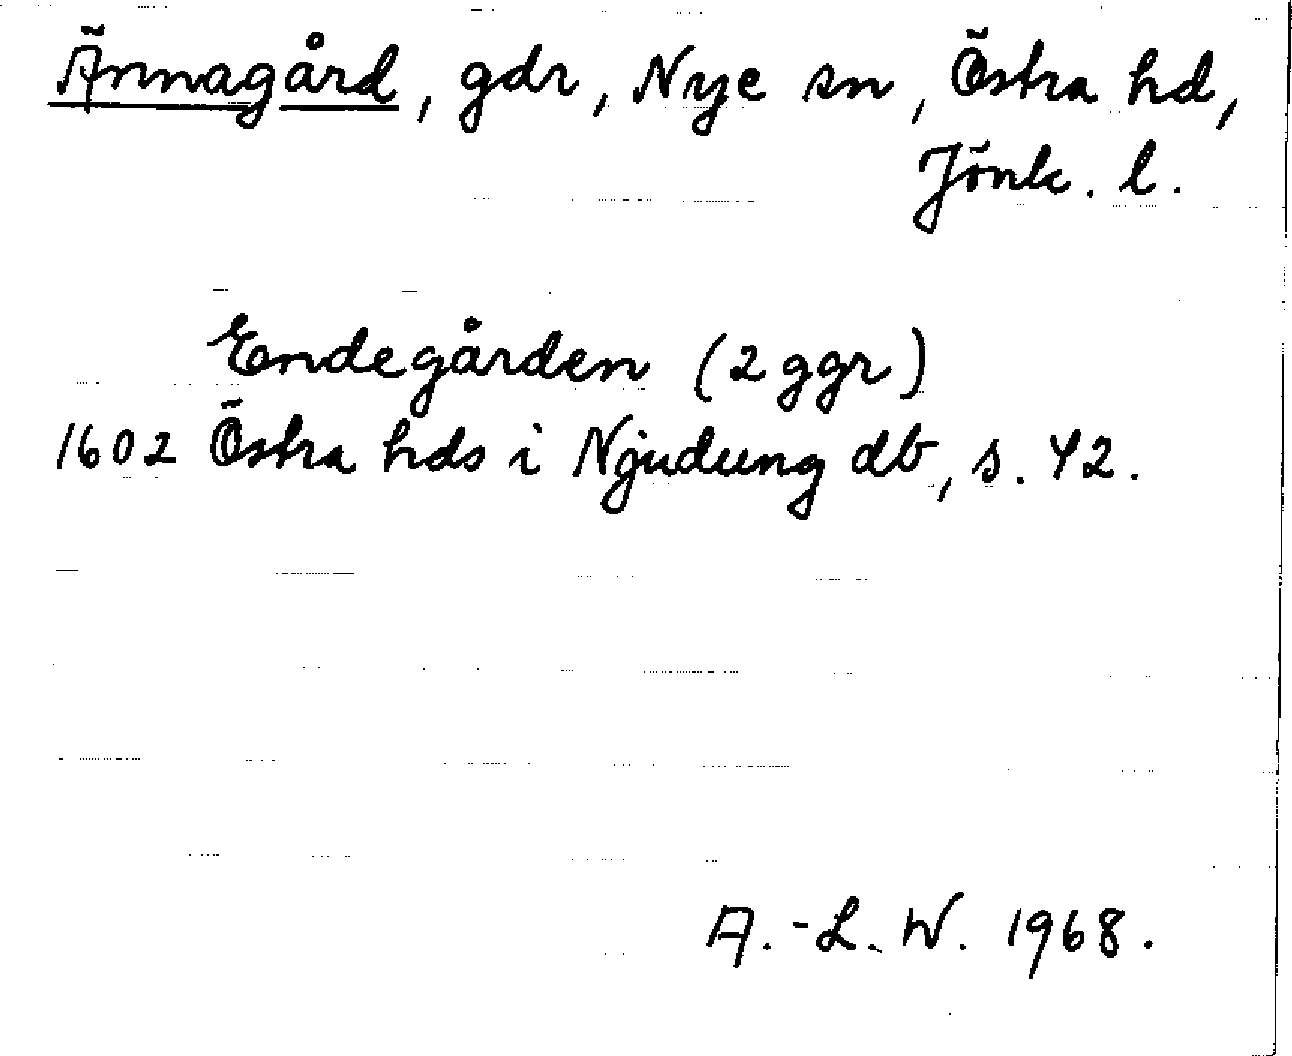 Ännagård, gdr, Nye sn, Östra hd,
Jönk. l.
Endegården (2 ggr)
1602 Östra hds i Njudung db, s. 42.
A.-L. W. 1968.